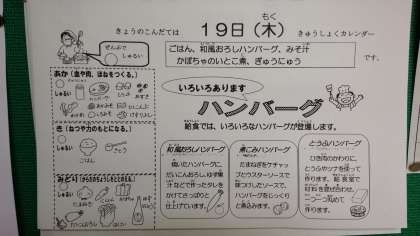 きょうのこんだては
19日(木)
もく
きゅうしょくカレンダー
ぜんぶで
しゅるい
ごはん、和風おろしハンバーグ、みそ汁
かぼちゃのいとこ煮、ぎゅうにゅう
です。
あか(血や肉、ほねをつくる。)
しゅるい
き(ねつや力のもとになる。)
しゅるい
ごはん
みどり
しゅるい
いろいろあります
ハンバーグ
給食では、いろいろなハンバーグが登場します。
和風おろしハンバーグ
焼いたハンバーグに、
だいこんおろし、ゆず果
汁などで作ったタレを
かけてさっぱりと
仕上げています。
煮こみハンバーグ
たまねぎをケチャッ
プとウスターソースで
味つけしたソースで、
ハンバーグをじっくり
と煮込みます。
とうふハンバーグ
ひき肉のかわりに、
とうふやツナを使って
作ります。給食室で
材料を混ぜ合わせ、
一つ一つ丸めて
作ります。